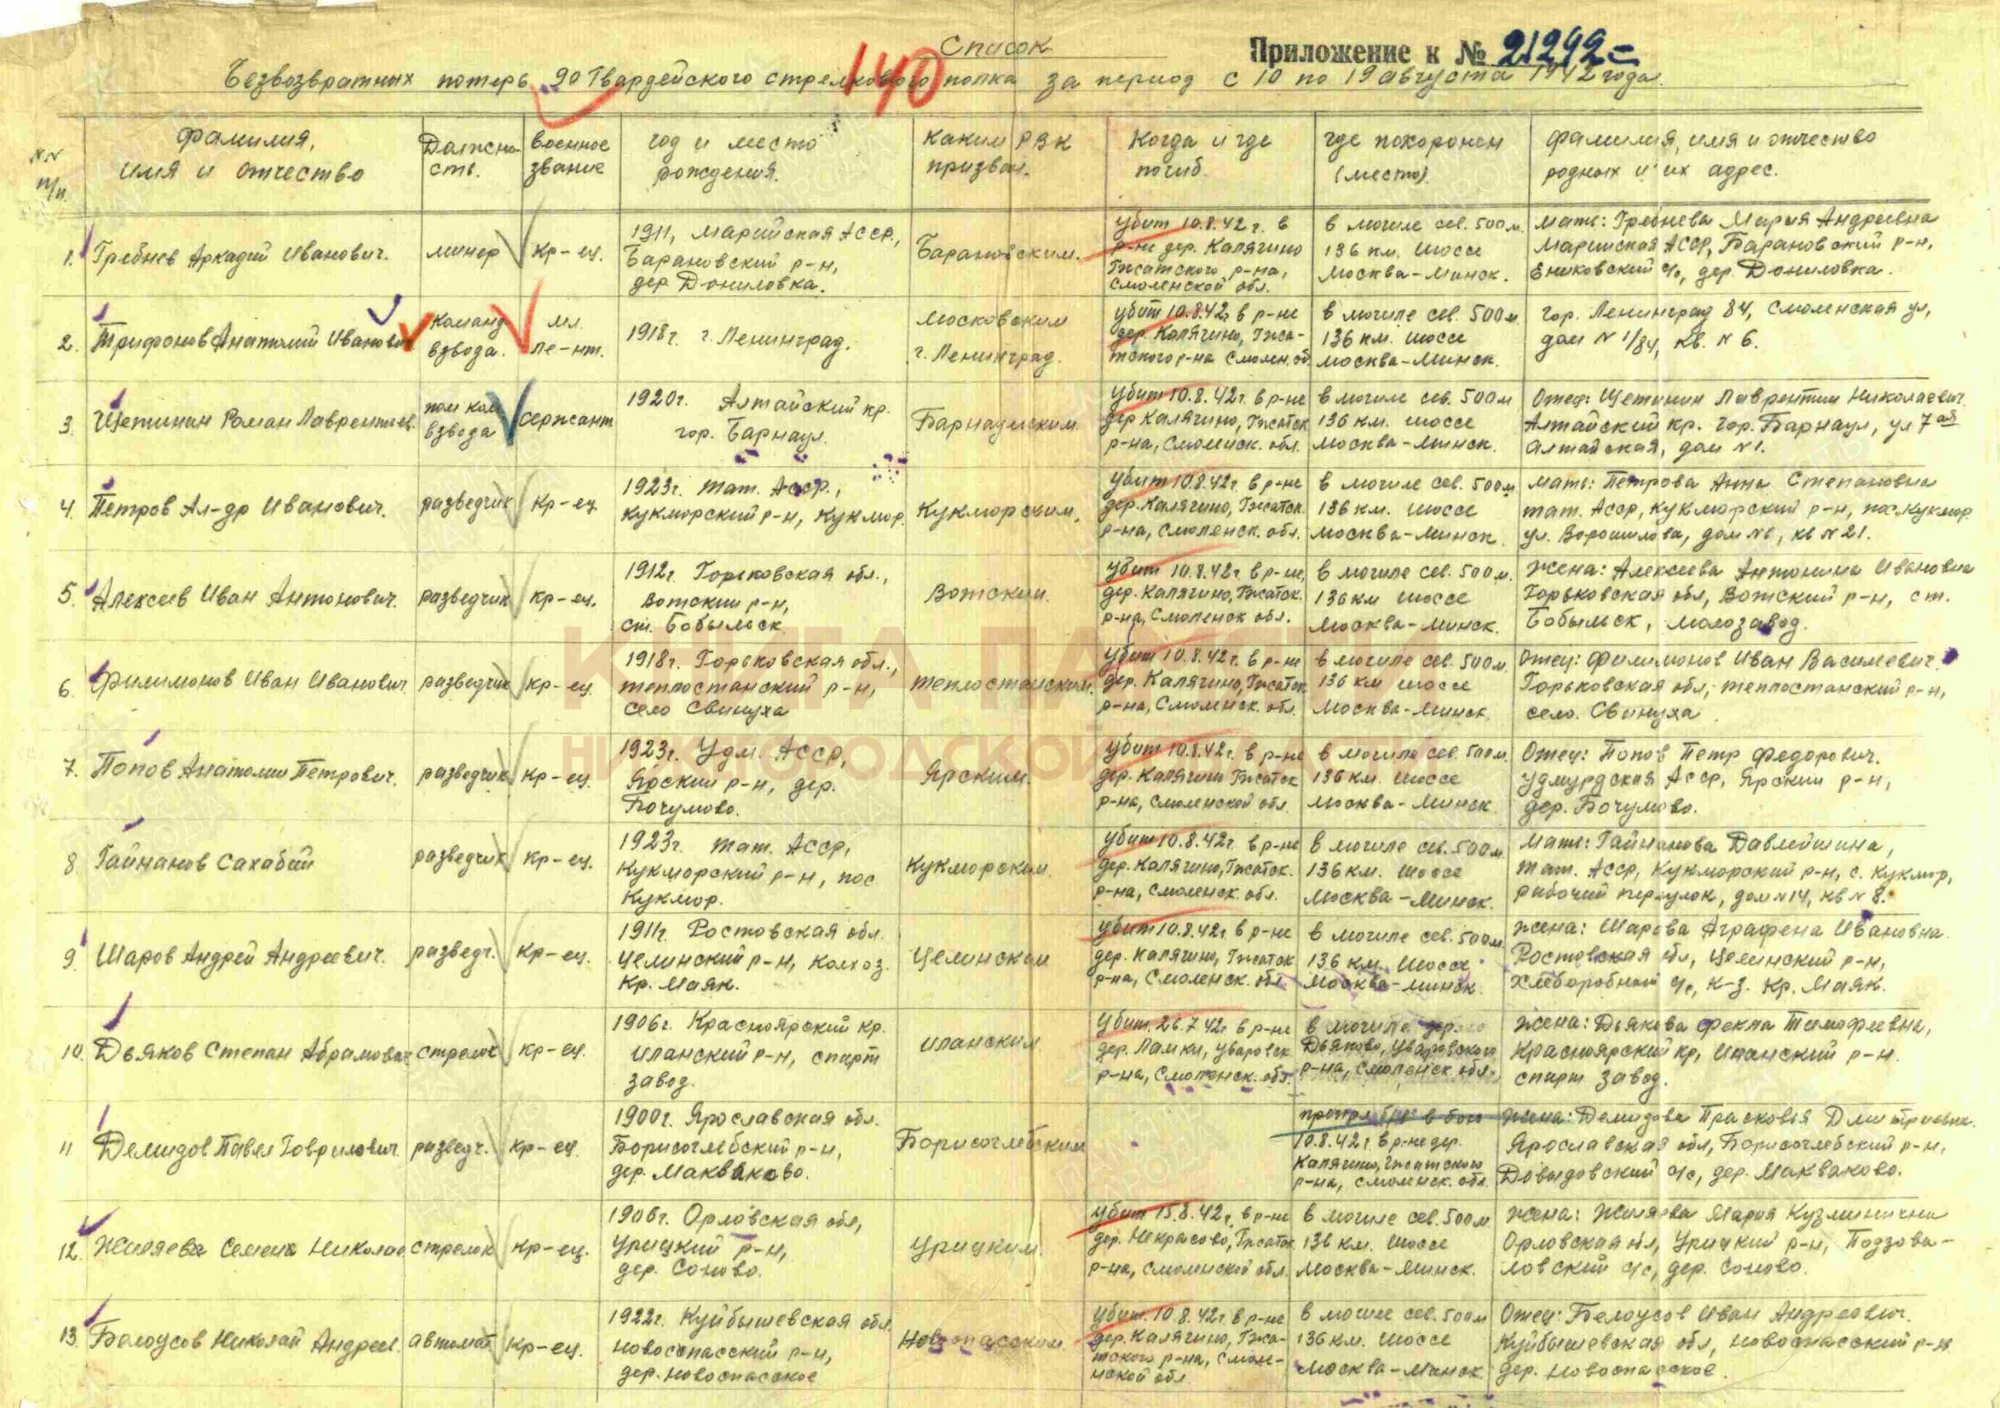 Список
Приложение к № 21292=
Безвозвратных потерь 90 Гвардейского стрелкового полка за период с 10 по 19 августа 1942 года.
140
№№ п/п.
фамилия,
имя и отчество
Должно-
ств.
военное
звание
год и место
рождения.
каким РВК
призван.
Когда и где
погиб.
где похоронен
(место)
фамилия, имя и отчество
родных и их адрес.
1. Гребнев Аркадий Иванович.
минер
Кр-ец.
1911, Марийская АССР,
Барановский р-н,
дер. Даниловка.
Барановским.
убит 10.8.42 г. в
р-не дер. Калягино
Гжатского р-на,
Смоленской обл.
в могиле сев. 500 м.
136 км. шоссе
Москва-Минск.
мать: Гребнева Мария Андреевна
Марийская АССР, Барановский р-н,
Ениковский с/с, дер. Даниловка.
2. Трифонов Анатолий Иванович
Команд
взвода.
мл.
ле-нт.
1918г. г. Ленинград.
Московским
г. Ленинград.
убит 10.8.42г. в р-не
дер. Калягино, Гжа-
тского р-на Смолен. об
в могиле сев. 500 м
136 км. шоссе
Москва-Минск.
гор. Ленинград 84, Смоленская ул,
дом № 1/84, кв. № 6.
3. Щетинин Роман Лаврентьев.
пом ком
взвода
Сержант
1920г. Алтайский кр.
гор. Барнаул.
Барнаульским.
убит 10.8.42г. в р-не
дер Калягино, Гжатск
р-на, Смоленск. обл.
в могиле сев. 500 м
136 км. шоссе
Москва-Минск.
Отец: Щетинин Лаврентий Николаевич
Алтайский кр. гор. Барнаул, ул 7 ая
Алтайская, дом № 1.
4. Петров Ал-др Иванович.
разведчик
Кр-ец
1923г. Тат. АССР.,
Кукморский р-н, Кукмор.
Кукморским.
убит 10.8.42г. в р-не
дер. Калягино, Гжатск.
р-на, Смоленск. обл.
в могиле сев. 500 м
136 км. шоссе
Москва-Минск.
мать: Петрова Анна Степановна
Тат. АССР, Кукморский р-н, пос. Кукмор
ул. Ворошилова, дом № 6, кв № 21.
5. Алексеев Иван Антонович.
разведчик
Кр-ец.
1912г. Горьковская обл.,
Вотский р-н,
ст. Бобыльск
Вотским.
убит 10.8.42г. в р-не,
дер. Калягино, Гжатск.
р-на, Смоленск обл.
в могиле сев. 500 м.
136 км шоссе
Москва-Минск.
жена: Алексеева Антонина Ивановна
Горьковская обл, Вотский р-н, ст.
Бобыльск, молозавод.
6. Филимонов Иван Иванович
разведчик
Кр-ец.
1918г. Горьковская обл.,
Теплостанский р-н,
село Свинуха
Теплостанским.
убит 10.8.42г. в р-не
дер. Калягино, Гжатск
р-на, Смоленск. обл.
в могиле сев. 500 м.
136 км шоссе
Москва-Минск.
Отец: Филимонов Иван Васильевич.
Горьковская обл, Теплостанский р-н,
село. Свинуха.
7. Попов Анатолий Петрович.
разведчик
Кр-ец.
1923г. Удм. АССР,
Ярский р-н, дер.
Бочумово.
Ярским.
убит 10.8.42г. в р-не
дер. Калягино Гжатск
р-на, Смоленской обл
в могиле сев 500 м.
136 км. шоссе
Москва-Минск
Отец: Попов Петр Федорович.
Удмурдская АССР, Ярский р-н,
дер. Бочумово.
8 Гайнанов Сахабий
разведчик
Кр-ец.
1923г. Тат. АССР,
Кукморский р-н, пос
Кукмор.
Кукморским.
убит 10.8.42г. в р-не
дер. Калягино, Гжатск.
р-на, Смоленск. обл.
в могиле сев. 500 м
136 км. шоссе
Москва-Минск.
мать: Гайнанова
Тат. АССР, Кукморский р-н, с. Кукмор,
рабочий переулок, дом № 14, кв № 8.
9. Шаров Андрей Андреевич.
разведч.
Кр-ец.
1911г. Ростовская обл.
Целинский р-н, Колхоз.
Кр. Маяк.
Целинским
убит 10.8.42г. в р-не
дер. Калягино, Гжатск
р-на, Смоленск. обл
в могиле сев. 500 м
136 км. шоссе
Москва-Минск.
жена: Шарова Аграфена Ивановна.
Ростовская обл, Целинский р-н,
Хлеборобный с/с, к-з. Кр. Маяк.
10. Дьяков Степан Абрамович
стрелок
Кр-ец.
1906г. Красноярский кр.
Иланский р-н, спирт
завод.
Иланским
убит. 26.7.42г. в р-не
дер. Ламки, Уваровск
р-на, Смоленск. обл.
в могиле дер.
Дьяково, Уваровского
р-на, Смоленск обл.
жена: Дьякова Фекла Тимофеевна,
Красноярский кр, Иланский р-н.
спирт завод.
11 Демидов Павел Гаврилович
разведч.
Кр-ец.
1900г. Ярославская обл.
Борисоглебский р-н,
дер. Макваково.
Борисоглебским
в бою
10.8.42г в р-не дер.
Калягино, Гжатского
р-на, Смоленск. обл.
жена: Демидова Прасковья Дмитриевна.
Ярославская обл, Борисоглебский р-н,
Давыдовский с/с, дер. Макваково.
12. Жиляева Семена Николае
стрелок
Кр-ец.
1906г. Орловская обл,
Урицкий р-н,
дер. Соново.
Урицким.
убит 15.8.42г. в р-не
дер. Некрасово, Гжатск
р-на, Смоленской обл.
в могиле сев. 500 м
136 км. шоссе
Москва-Минск.
жена: Жиляева Мария Кузьминична
Орловская обл, Урицкий р-н, Подзова-
ловский с/с, дер. Соново.
13. Белоусов Николай Андреев.
автомат
Кр-ец.
1922г. Куйбышевская обл
Новоспасский р-н,
дер. Новоспасское
Новоспасским.
убит. 10.8.42г. в р-не
дер. Калягино, Гжа-
тского р-на, Смоле-
нской обл
в могиле сев. 500 м
136 км. шоссе
Москва-Минск
Отец: Белоусов Иван Андреевич.
Куйбышевская обл, Новоспасский р-н
дер. Новоспасское.